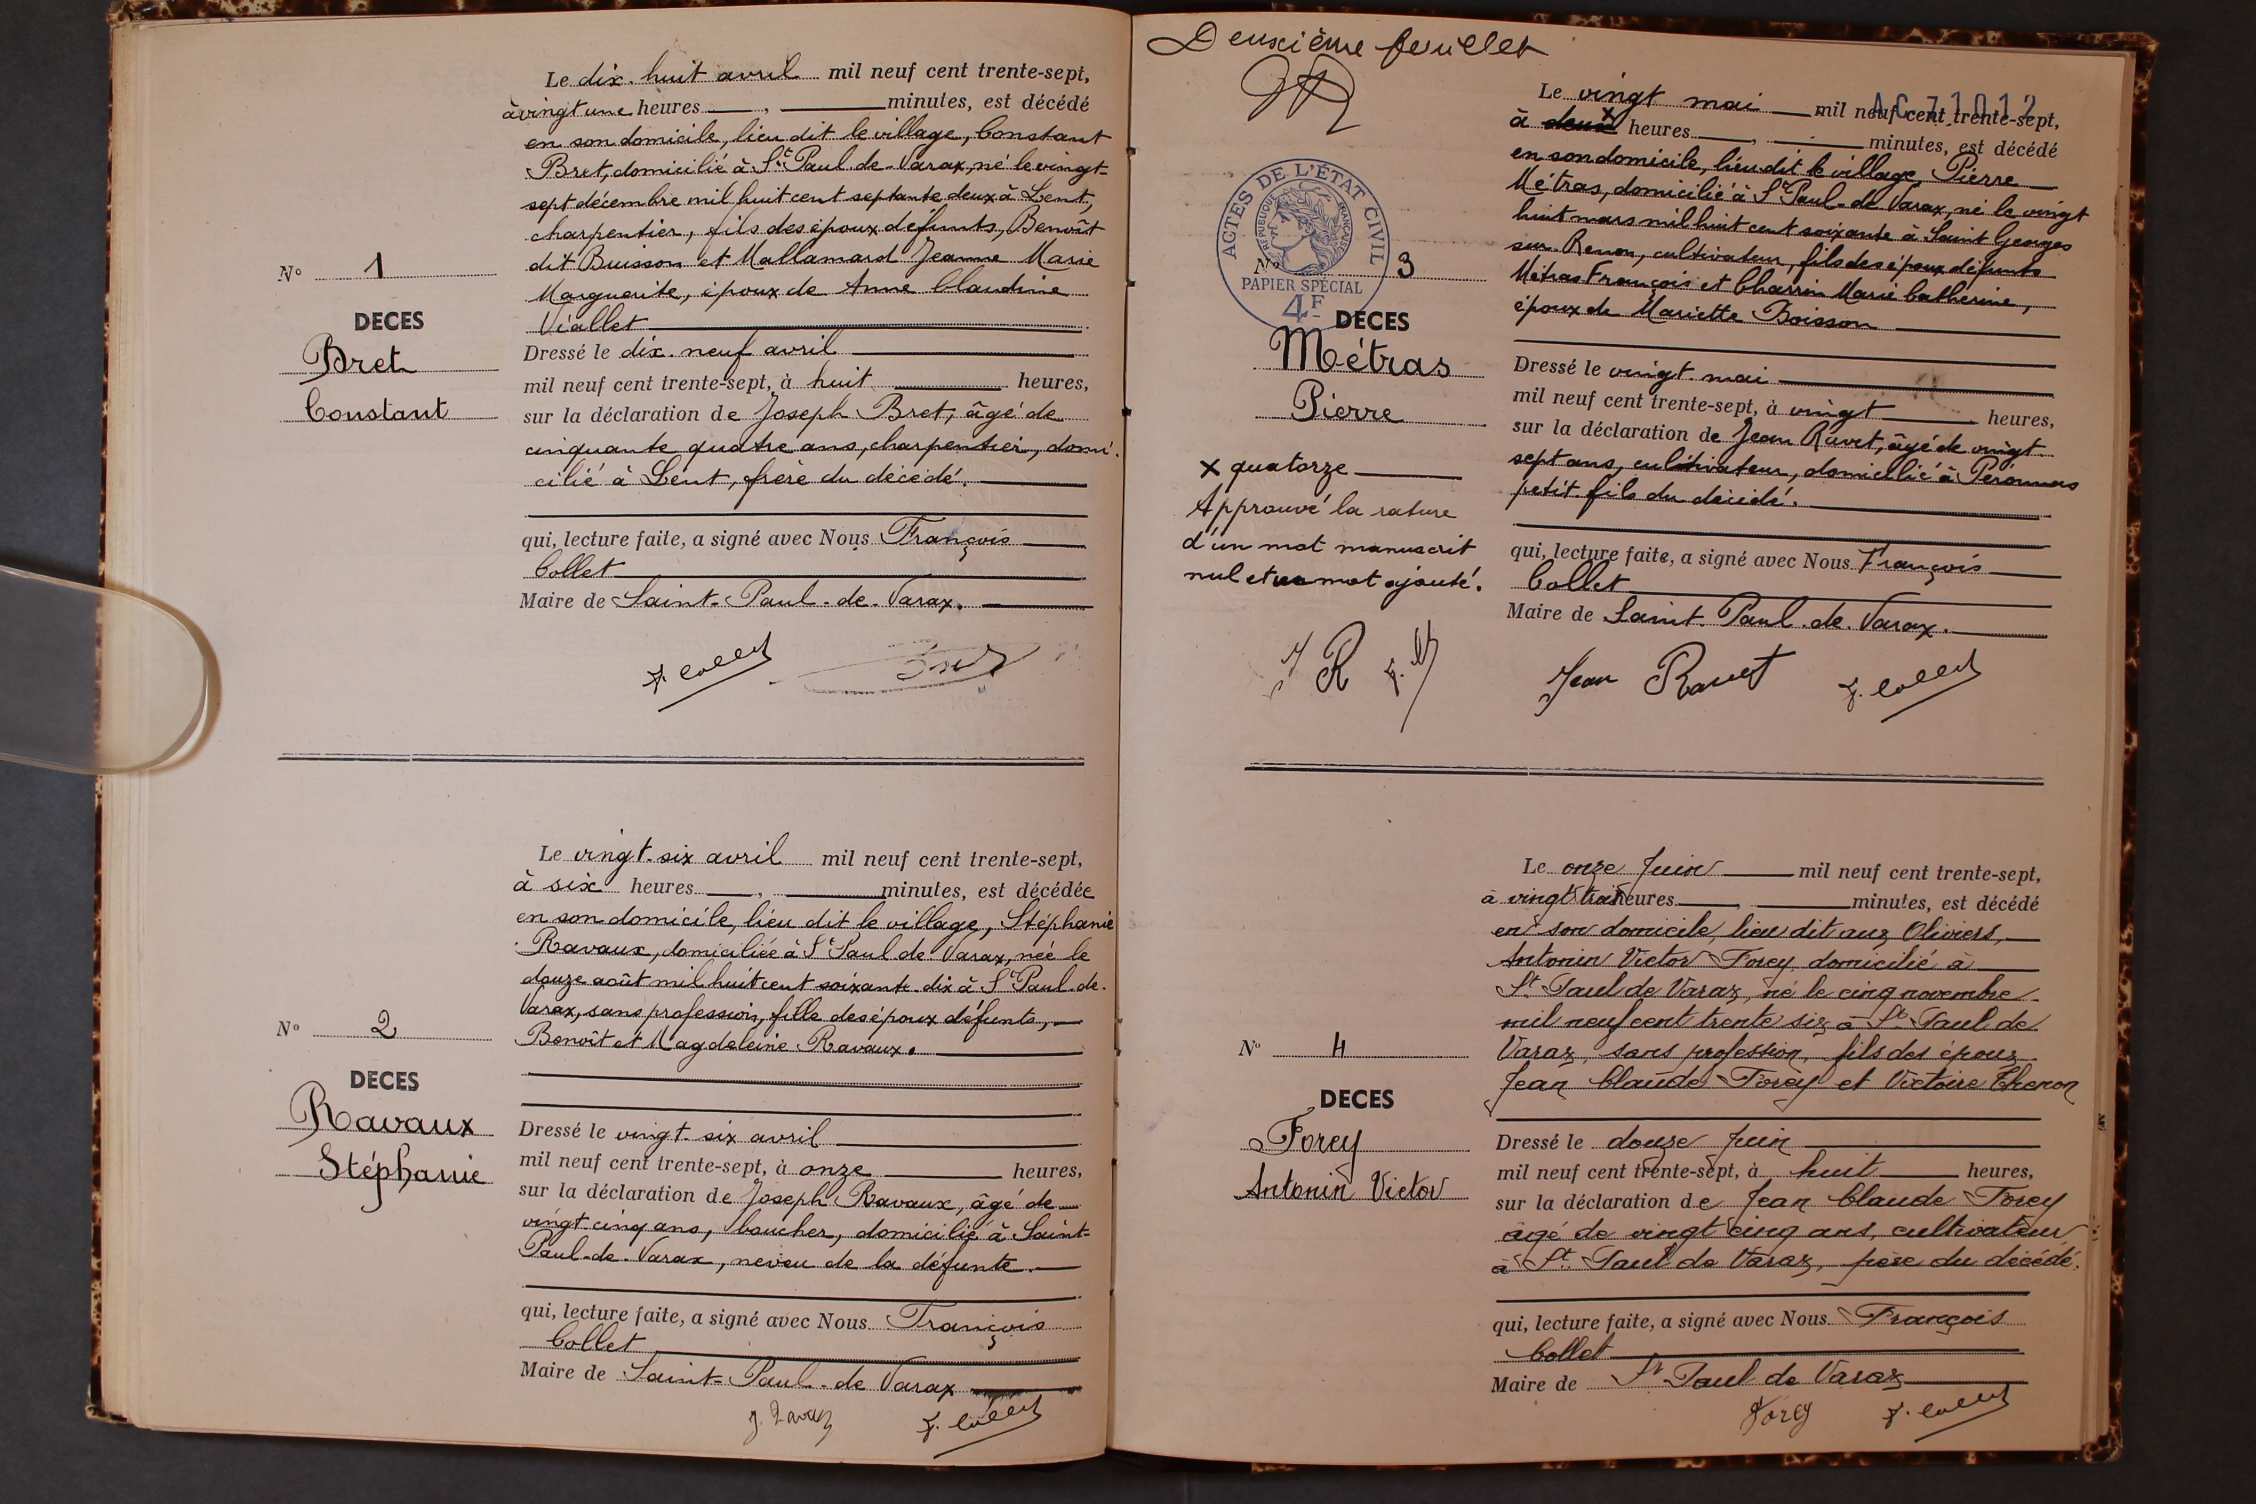 Le dix-huit avril mil neuf cent trente-sept,
à vingt une heures, minutes, est décédé
en son domicile, lieu dit le village, Constant
Bret, domicilié à St Paul-de-Varax, né le vingt-
sept décembre mil huit cent septante deux à Lent,
charpentier, fils des époux défunts, Benoît
dit Buisson et Mallamard Jeanne Marie
Marguerite, époux de Anne Claudine
Viallet
Dressé le dix-neuf avril
mil neuf cent trente-sept, à huit heures,
sur la déclaration de Joseph Bret, âgé de
cinquante quatre ans, charpentier, domi-
cilié à Lent, frère du décédé.
qui, lecture faite, a signé avec Nous François
Collet
Maire de Saint-Paul-de-Varax.
F. Collet
Nº 1
DECES
Bret
Constant
Le vingt-six avril mil neuf cent trente-sept,
à six heures, minutes, est décédée
en son domicile, lieu dit le village, Stéphanie
Ravaux, domiciliée à St Paul de Varax, née le
douze août mil huit cent soixante-dix à St Paul-de-
Varax, sans profession, fille des époux défunts,
Benoît et Magdeleine Ravaux.
Dressé le vingt-six avril
mil neuf cent trente-sept, à onze heures,
sur la déclaration de Joseph Ravaux, âgé de
vingt cinq ans, boucher, domicilié à Saint-
Paul-de-Varax, neveu de la défunte.
qui, lecture faite, a signé avec Nous François
Collet
Maire de Saint-Paul-de Varax
F. Collet
Nº 2
DECES
Ravaux
Stéphanie
Deuxième feuillet
AC 71012
ACTES DE L'ÉTAT CIVIL
RÉPUBLIQUE FRANÇAISE
PAPIER SPÉCIAL
4F
Le vingt mai mil neuf cent trente-sept,
à deux x heures, minutes, est décédé
en son domicile, lieu dit le village, Pierre
Métras, domicilié à St Paul-de Varax, né le vingt
huit mars mil huit cent soixante à Saint Georges
sur Renon, cultivateur, fils des époux défunts
Métras François et Charrin Marie Catherine,
époux de Mariette Boisson
Dressé le vingt-mai
mil neuf cent trente-sept, à vingt heures,
sur la déclaration de Jean Ravet, âgé de vingt
sept ans, cultivateur, domicilié à Péronnas
petit-fils du décédé.
qui, lecture faite, a signé avec Nous François
Collet
Maire de Saint-Paul-de-Varax.
Jean Ravet F. Collet
Nº 3
DECES
Métras
Pierre
x quatorze
Approuvé la rature
d'un mot manuscrit
nul et un mot ajouté.
Le onze Juin mil neuf cent trente-sept,
à vingt trois heures, minutes, est décédé
en son domicile, lieu dit aux Oliviers,
Antonin Victor Forey domicilié à
St Paul de Varax, né le cinq novembre
mil neuf cent trente six à St Paul de
Varax, sans profession, fils des époux
Jean Claude Forey et Victoire Thenon
Dressé le douze Juin
mil neuf cent trente-sept, à huit heures,
sur la déclaration de Jean Claude Forey
âgé de vingt cinq ans, cultivateur
à St Paul de Varax, père du décédé.
qui, lecture faite, a signé avec Nous François
Collet
Maire de St Paul de Varax
Forey F. Collet
Nº 4
DECES
Forey
Antonin Victor